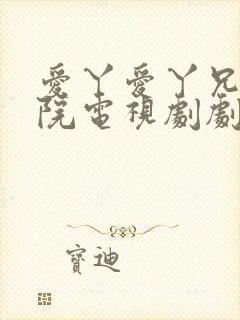 愛丫愛丫兄
院電視劇劇
寶迪